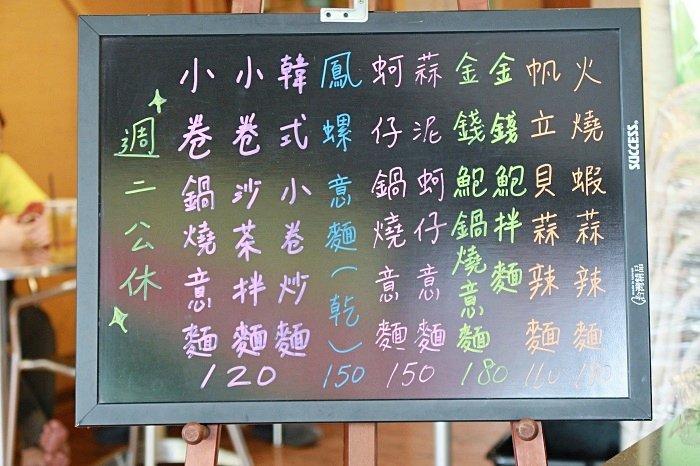 火燒蝦蒜辣麵
180
帆立貝蒜辣麵
金錢鮑拌麵
金錢鮑鍋燒意麵
180
蒜泥蚵仔意麵
蚵仔鍋燒意麵
150
鳳螺意麵(乾)
150
韓式小卷炒麵
小卷沙茶拌麵
小卷鍋燒意麵
120
週二公休
SUCCESS